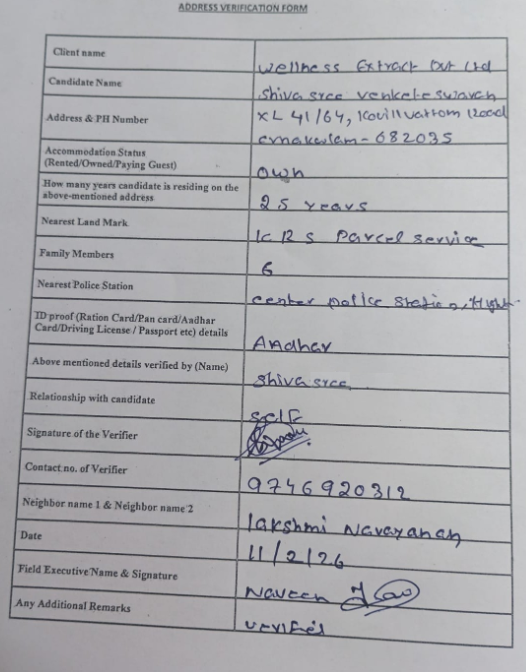 ADDRESS VERIFICATION FORM
Client name
Wellness Extract Pvt Ltd
Candidate Name
Shiva sree venkateswaran
Address & PH Number
XL 41/64, Kovilvattom Road
ernakulam - 682035
Accommodation Status
(Rented/Owned/Paying Guest)
own
How many years candidate is residing on the
above-mentioned address
25 years
Nearest Land Mark
KRS Parcel service
Family Members
6
Nearest Police Station
center police station,
ID proof (Ration Card/Pan card/Aadhar
Card/Driving License / Passport etc) details
Aadhar
Above mentioned details verified by (Name)
Shiva sree
Relationship with candidate
self
Signature of the Verifier
Contact no. of Verifier
9746920312
Neighbor name 1 & Neighbor name 2
lakshmi Narayanan
Date
11/2/26
Field Executive Name & Signature
Naveen
Any Additional Remarks
verified